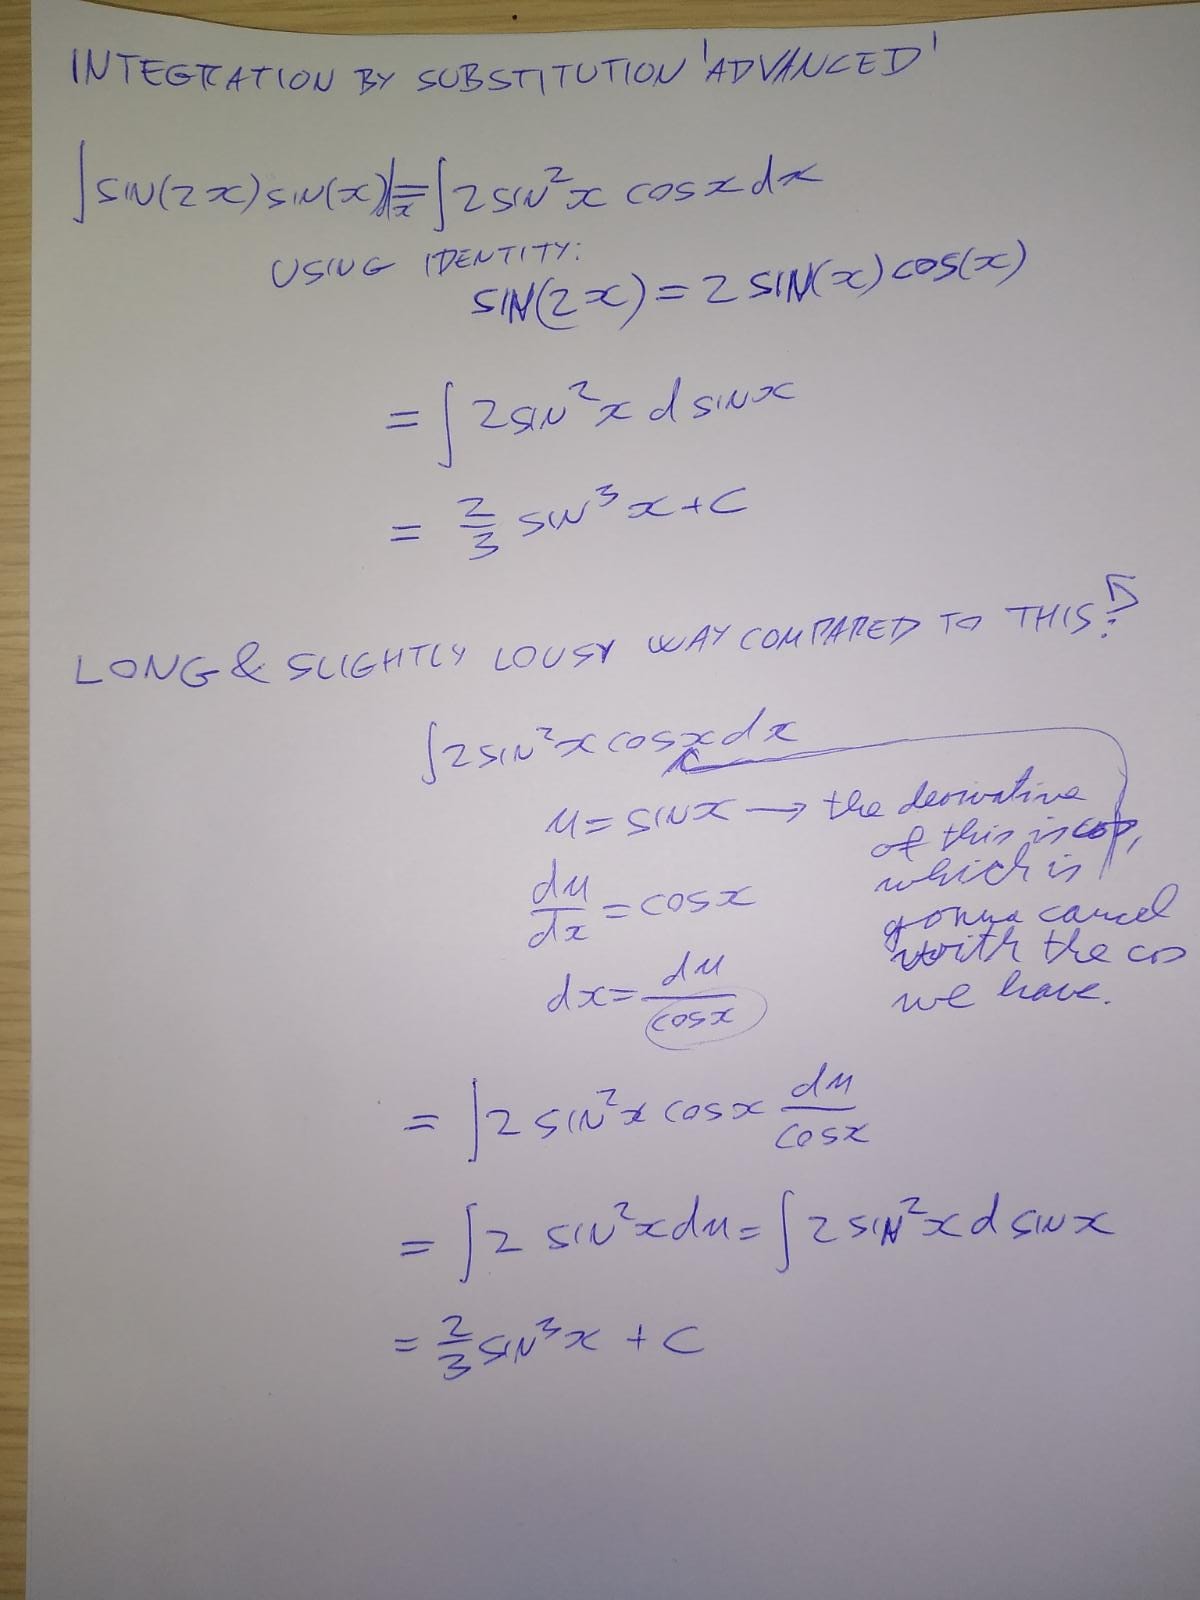 INTEGRATION BY SUBSTITUTION 'ADVANCED'
∫SIN(2x)SIN(x)dx=∫2SIN²x COSxdx
USING IDENTITY:
SIN(2x)=2SIN(x)COS(x)
=∫2SIN²x d SINx
=2/3 SIN³x+C
LONG & SLIGHTLY LOUSY WAY COMPARED TO THIS?
∫2SIN²xCOSxdx
u=SINx → the derivative
of this is cos,
which is
gonna cancel
with the cos
we have.
du/dx=COSx
dx=du/COSx
=∫2SIN²xCOSx du/COSx
=∫2 SIN²xdu=∫2SIN²xd SINx
=2/3SIN³x+C